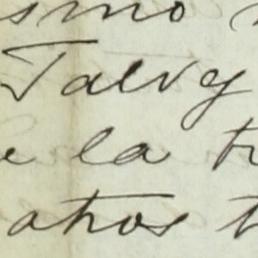 smo
Talvez
e la tr
atros t